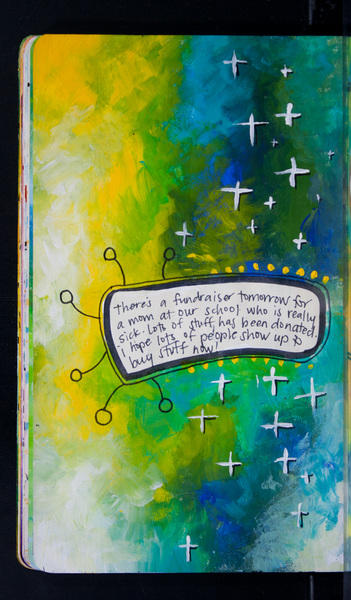 there's a fundraiser tomorrow for
a mom at our school who is really
sick. Lots of stuff has been donated.
i hope lots of people show up to
buy stuff now!